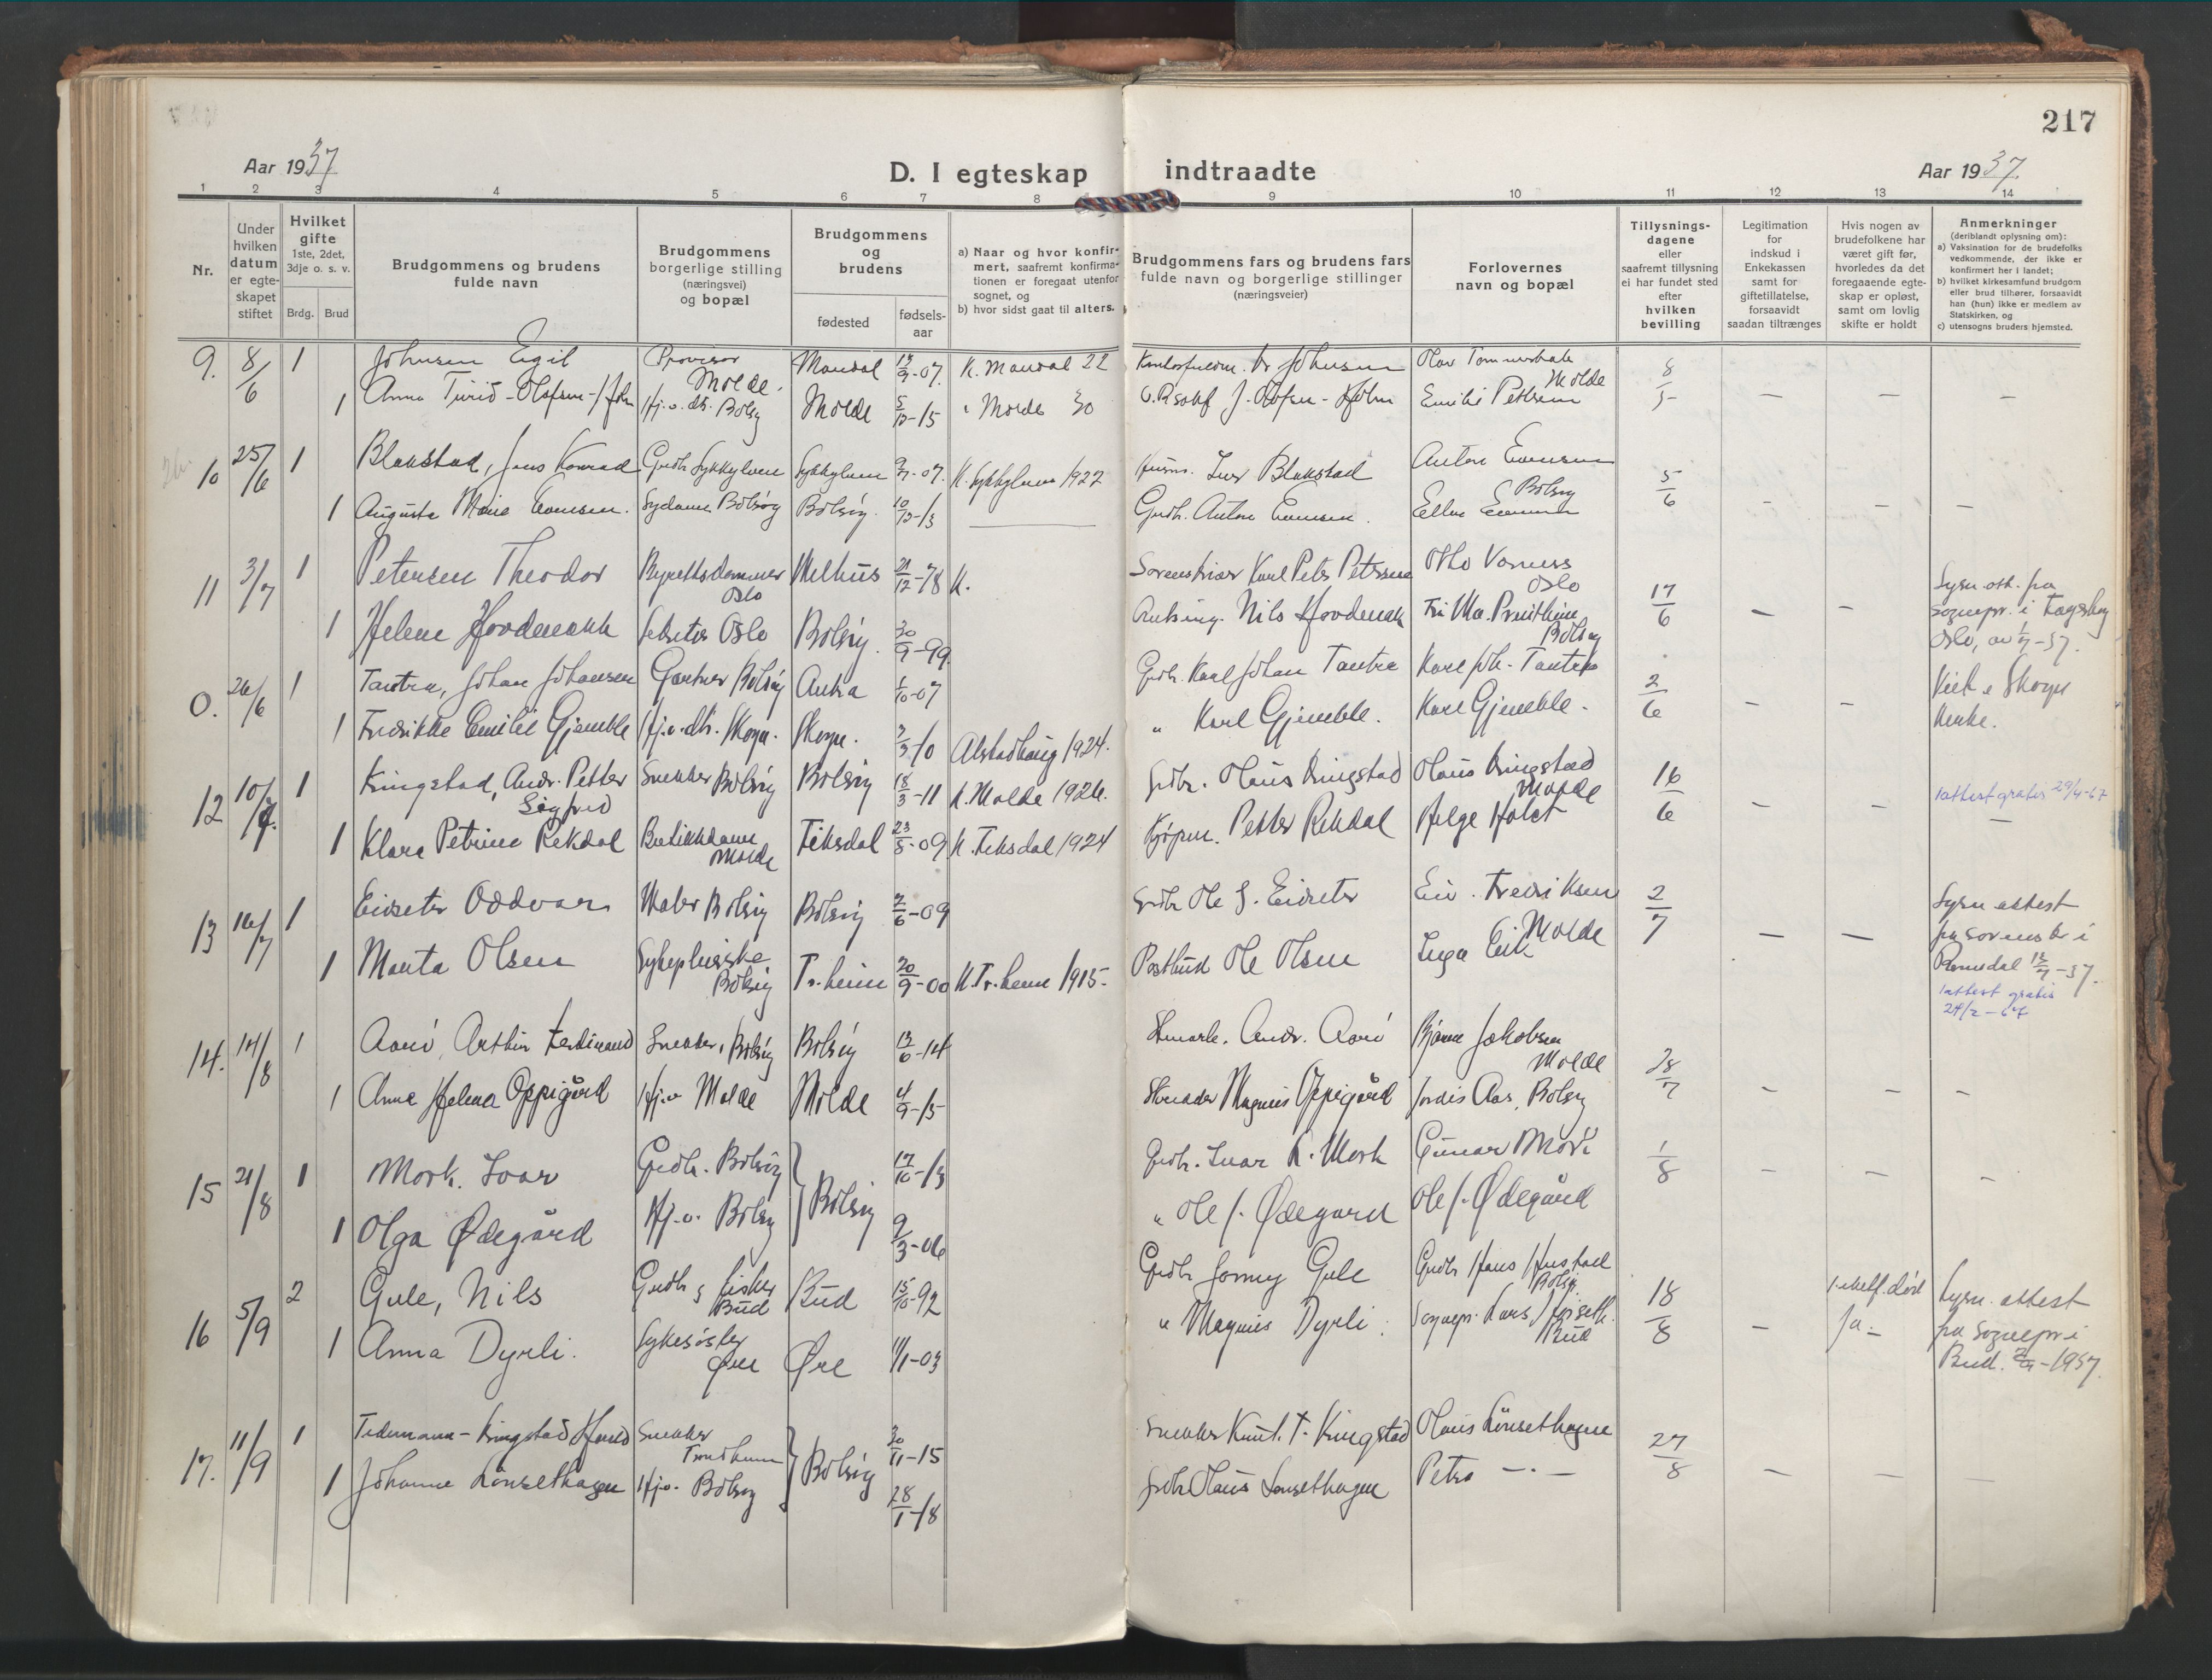 217
Aar 1937
D. I egteskap indtraadte
Aar 1937.
1 2 3 4 5 6 7 8 9 10 11 12 13 14
Nr.
Under hvilken datum er egteskapet stiftet
Hvilket gifte 1ste, 2det, 3dje o. s. v.
Brdg. Brud
Brudgommens og brudens fulde navn
Brudgommens borgerlige stilling (næringsvei) og bopæl
Brudgommens og brudens
fødested
fødsels-aar
a) Naar og hvor konfirmert, saafremt konfirmationen er foregaat utenfor sognet, og
b) hvor sidst gaat til alters.
Brudgommens fars og brudens fars fulde navn og borgerlige stillinger (næringsveier)
Forlovernes navn og bopæl
Tillysningsdagene eller saafremt tillysning ei har fundet sted efter hvilken bevilling
Legitimation for indskud i Enkekassen samt for giftetillatelse, forsaavidt saadan tiltrænges
Hvis nogen av brudefolkene har været gift før, hvorledes da det foregaaende egteskap er opløst, samt om lovlig skifte er holdt
Anmerkninger
(deriblandt oplysning om):
a) Vaksination for de brudefolks vedkommende, der ikke er konfirmert her i landet;
b) hvilket kirkesamfund brudgom eller brud tilhører, forsaavidt han (hun) ikke er medlem av Statskirken, og
c) utensogns bruders hjemsted.
9. 8/6 1 Johnsen Egil Provisor Molde. Mandal 13/9-07. K. Mandal 22 Johnsen Olav Molde 8/5 — — —
1 Anna Turid Olofsen-Holm Hj.v. Bolsøy Molde 5/12-15 " Molde 30 J. Olofsen-Holm Emilie Pettersen
10 25/6 1 Blakstad, Jens Konrad Gbr. Sykkylven Sykkylven 9/7-07. K. Sykkylven 1922 Iver Blakstad Anton Evensen Bolsøy 5/6 - — —
1 Augusta Marie Evensen. Sydame Bolsøy Bolsøy. 10/12-13 Gbr. Anton Evensen. Ellen Evensen
11 3/7 1 Petersen Theodor Byrettsdommer Oslo Melhus 21/12-78 K. Sorenskriver Karl Peter Petersen Otto Oslo 17/6 — — Lysn. att. fra sognepr. i Oslo, av 1/7-37.
1 Helene Hovdenakk Sekretær Oslo Bolsøy. 30/9-99. Nils Hovdenakk Bolsøy
0. 26/6 1 Tautra, Johan Johansen Gartner Bolsøy Aukra 1/10-07 Gbr. Karl Johan Tautra Karl Joh. Tautra 2/6 — — Viet i Skogn kirke.
1 Fredrikke Emilie Gjemble Hj.v. dtr. Skogn. Skogn. 2/3-10 Alstadhaug 1924. " Karl Gjemble. Karl Gjemble.
12 10/7. 1 Kringstad, Andr. Petter Sigfred Snekker Bolsøy Bolsøy 18/3-11 K. Molde 1926. Gbr. Olaus Kringstad Olaus Kringstad Molde 16/6 — — 1 attest gratis 29/4-67 —
1 Klara Petrine Rekdal Butikkdame Molde Fiksdal 23/5-09 K. Fiksdal 1924 Kjøpm. Petter Rekdal Helge Holst
13 16/7 1 Eidseter Oddvar Maler Bolsøy Bolsøy 2/6-09 Gbr. Ole J. Eidseter Eiv. Fredriksen Molde 2/7 — — Lysn. attest fra sorenskr. i Romsdal 13/7-37. 1 attest gratis 24/2-67
1 Marta Olsen Sykepleierske Bolsøy Tr.heim 20/9-00 K. Tr.heim 1915- Postbud Ole Olsen Inga Eik
14. 14/8 1 Aarø, Arthur Ferdinand Snekker, Bolsøy Bolsøy 13/6-14 Andr. Aarø Bjarne Jakobsen Molde 28/7 — — —
1 Anna Helena Oppigård Hj.v Molde Molde 4/9-15 Magnus Oppigård Jordis Aas, Bolsøy
15 21/8 1 Mork. Ivar Gbr. Bolsøy Bolsøy 17/10-13 Gbr. Ivar K. Mork Gunar Mork 1/8 - — —
1 Olga Ødegård Hj.v. Bolsøy 9/3-06 " Ole J. Ødegård Ole J. Ødegård
16 5/9 2 Gule, Nils Gbr. & fisker Bud Bud 15/10-92 Gbr. Jonny Gule Gbr. Hans Hustad Bolsøy. 18/8 — 1. ekt. død Ja. — Lysn. attest fra sognepr. i Bud. 2/9-1937.
1 Anna Dyrli. Sykesøster Øre Øre 11/1-03 " Magnus Dyrli. Sognepr. Lars Bud
17. 11/9 1 Tidemann-Kringstad Snekker Trondheim Bolsøy 20/11-15 Snekker Knut. T. Kringstad Olaus Lønsethagen 27/8 — — —
1 Johanna Lønsethagen Hj.v. Bolsøy 28/1-18 Gbr. Olaus Lønsethagen Petra — . —